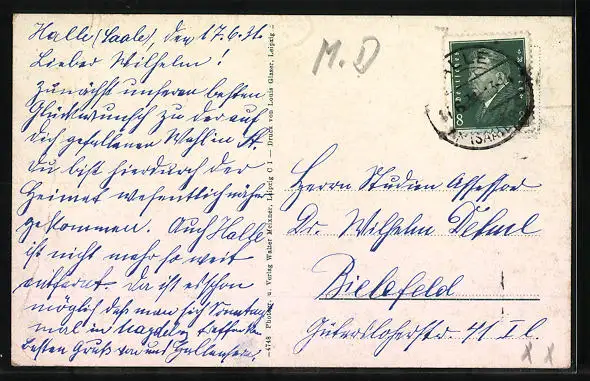 Halle (Saale), den 17.6.31.
Lieber Wilhelm!
Zunächst unseren besten
Glückwunsch zu der auf
dich gefallenen Wahl in
Du bist hierdurch der
Heimat wesentlich näher
gekommen. Auch Halle
ist nicht mehr so weit
entfernt. Da ist es schon
möglich daß man sich Sonntags
mal in treffen kann.
Besten Gruß von uns Hallensern.
—4748 Photogr. u. Verlag Walter Meixner, Leipzig C 1 — Druck von Louis Glaser, Leipzig —
M.D
8
Herrn Studien Assessor
Dr. Wilhelm
Bielefeld
Gütersloherstr. 41 I l.
x x